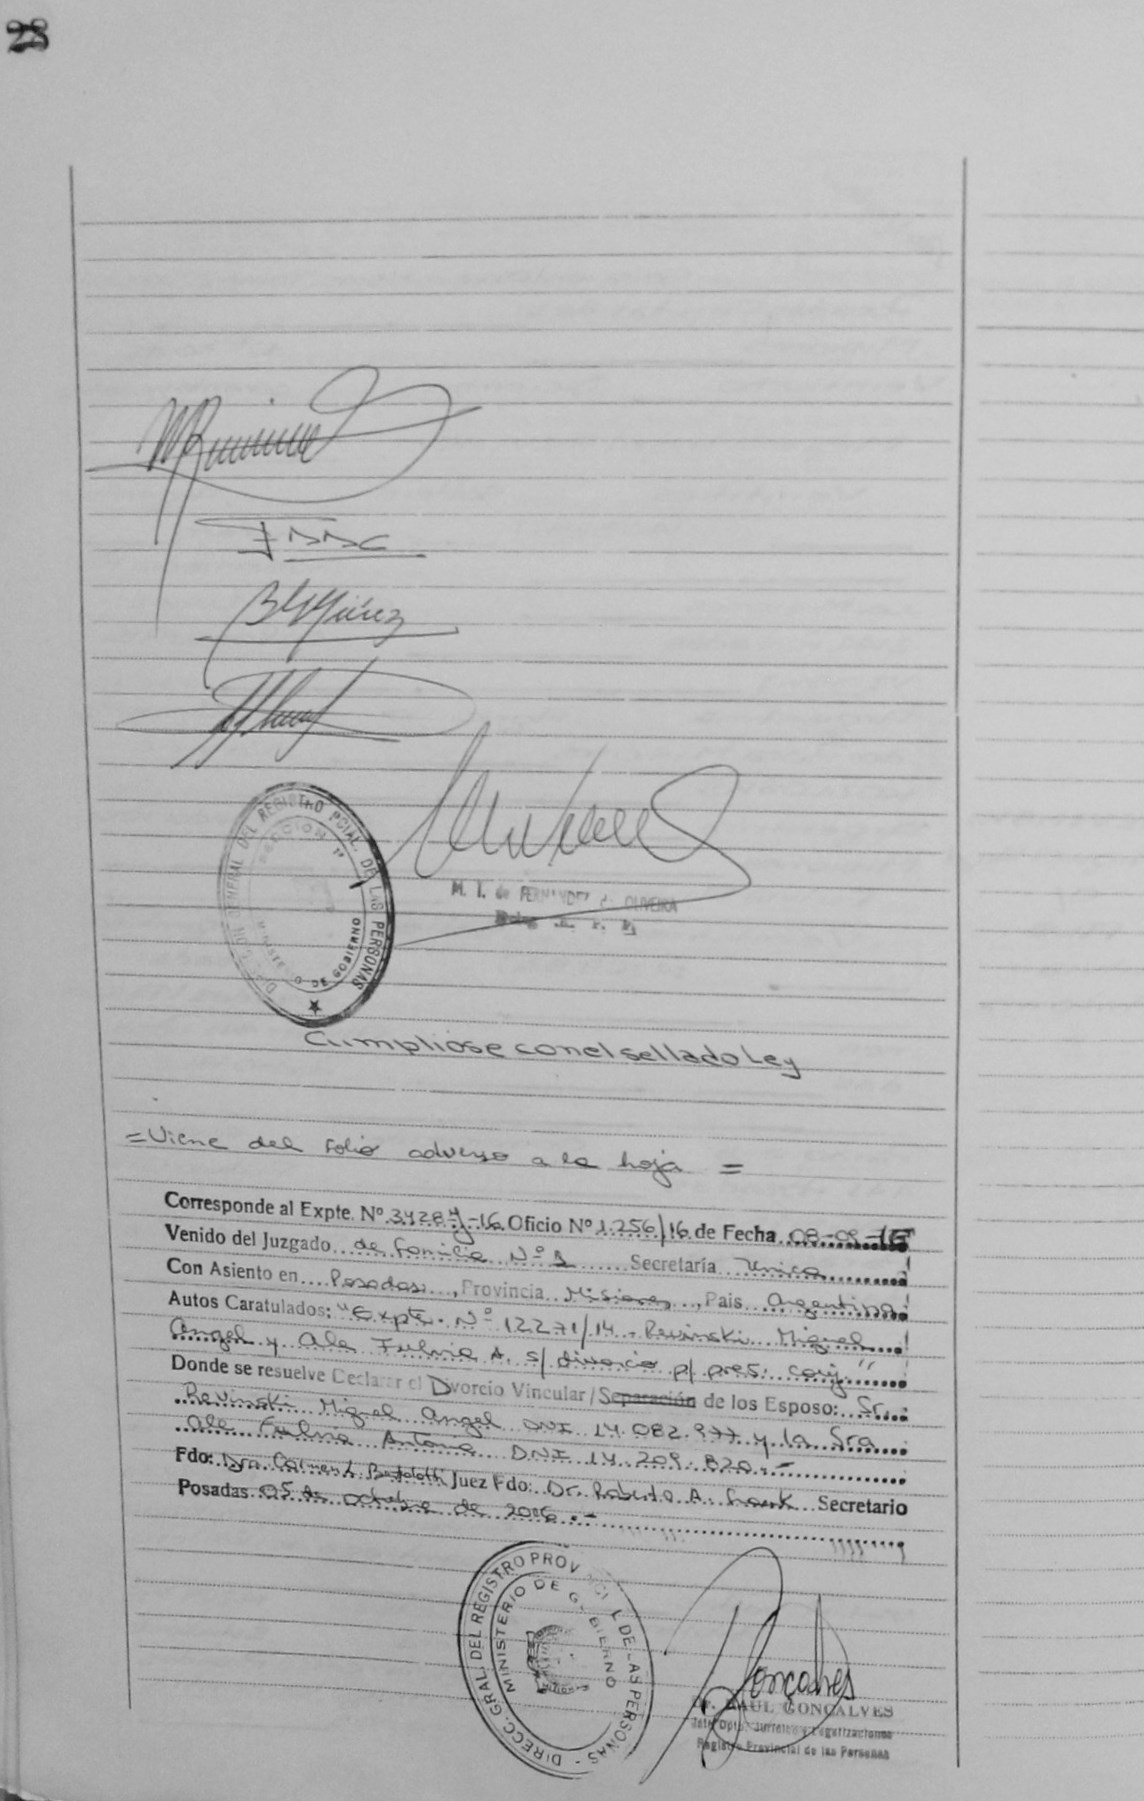 28
DIRECCION GENERAL DEL REGISTRO PCIAL. DE LAS PERSONAS
MINISTERIO DE GOBIERNO
M. T. de FERNANDEZ de OLIVEIRA
Cumpliose con el sellado Ley
=Viene del folio adverso a la hoja =
Corresponde al Expte. Nº 3428-y-16 Oficio Nº 1.256/16 de Fecha 08-09-16
Venido del Juzgado de familia Nº 1 Secretaría Unica
Con Asiento en Posadas, Provincia Misiones, País Argentina
Autos Caratulados: "Expte. Nº 12271/14 - Revinski Miguel
Angel y Ale Fulvia A. s/ divorcio p/ pres. conj"
Donde se resuelve Declarar el Dvorcio Vincular/Separación de los Esposo: Sr.
Revinski Miguel Angel DNI 14.082.977 y la Sra
Ale Fulvia Antonia DNI 14.209.820.-
Fdo: Dra Carmen L Bertolotti Juez Fdo: Dr. Roberto A. Secretario
Posadas 05 de octubre de 2016.-
DIRECC. GRAL. DEL REGISTRO PROVINCIAL DE LAS PERSONAS -
MINISTERIO DE GOBIERNO
Goncalves
Dr. RAUL GONCALVES
Jefe Dpto. Jurídico y Legalizaciones
Registro Provincial de las Personas